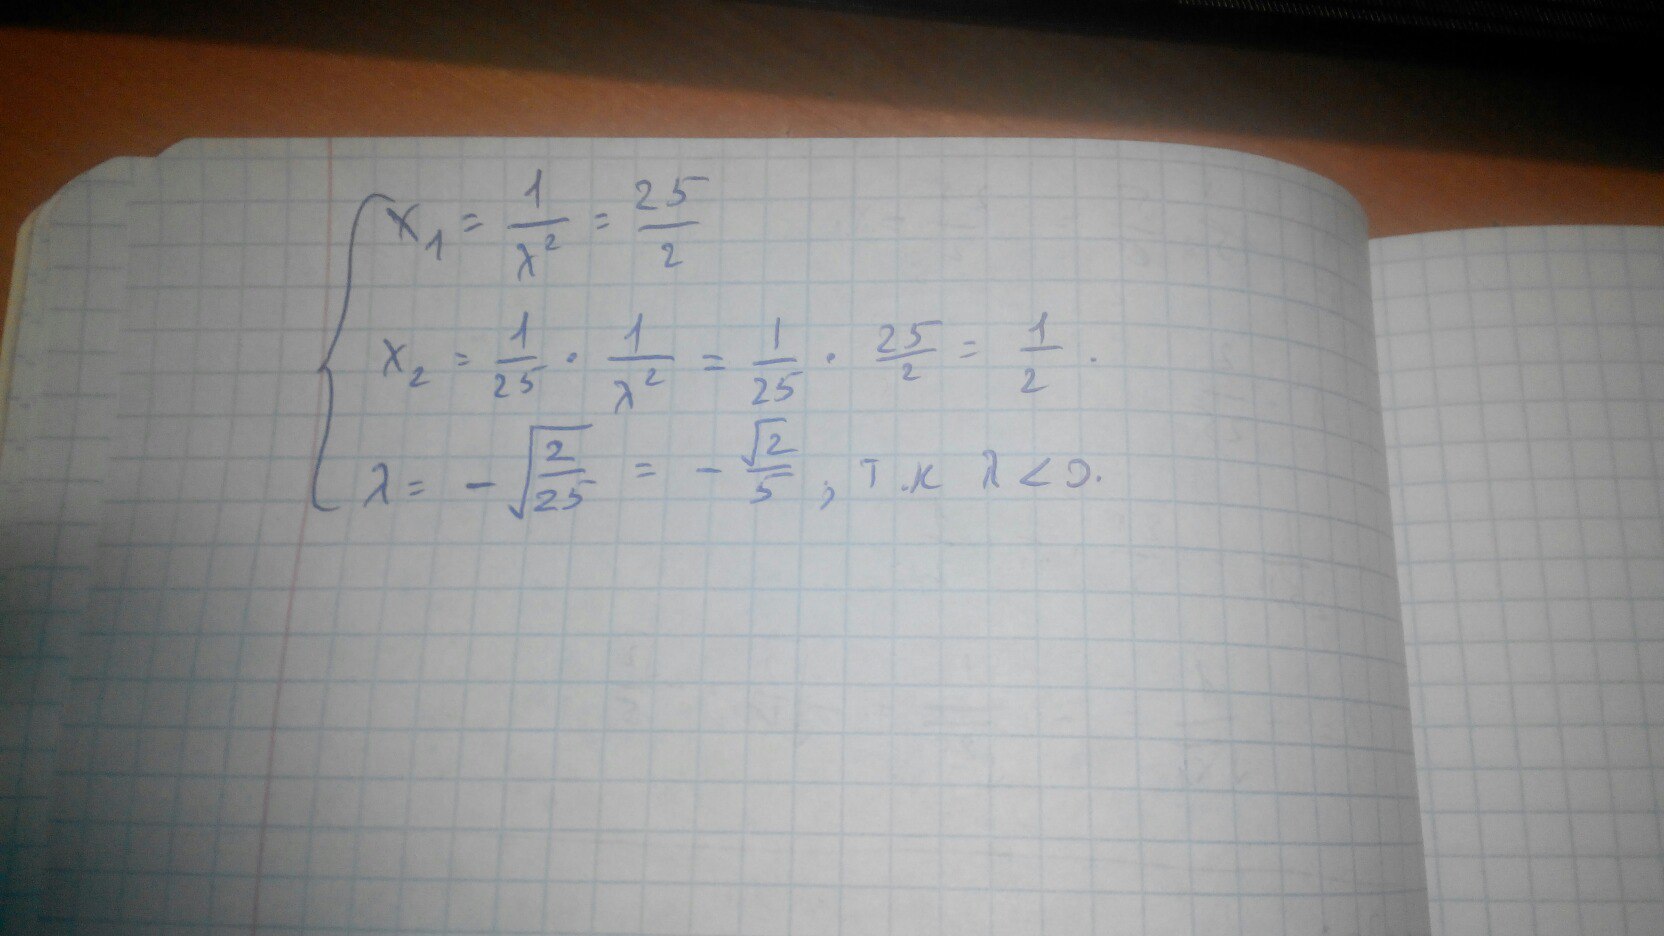 x₁ = 1/λ² = 25/2
x₂ = 1/25 · 1/λ² = 1/25 · 25/2 = 1/2.
λ = -√(2/25) = -√2/5, т.к λ < 0.